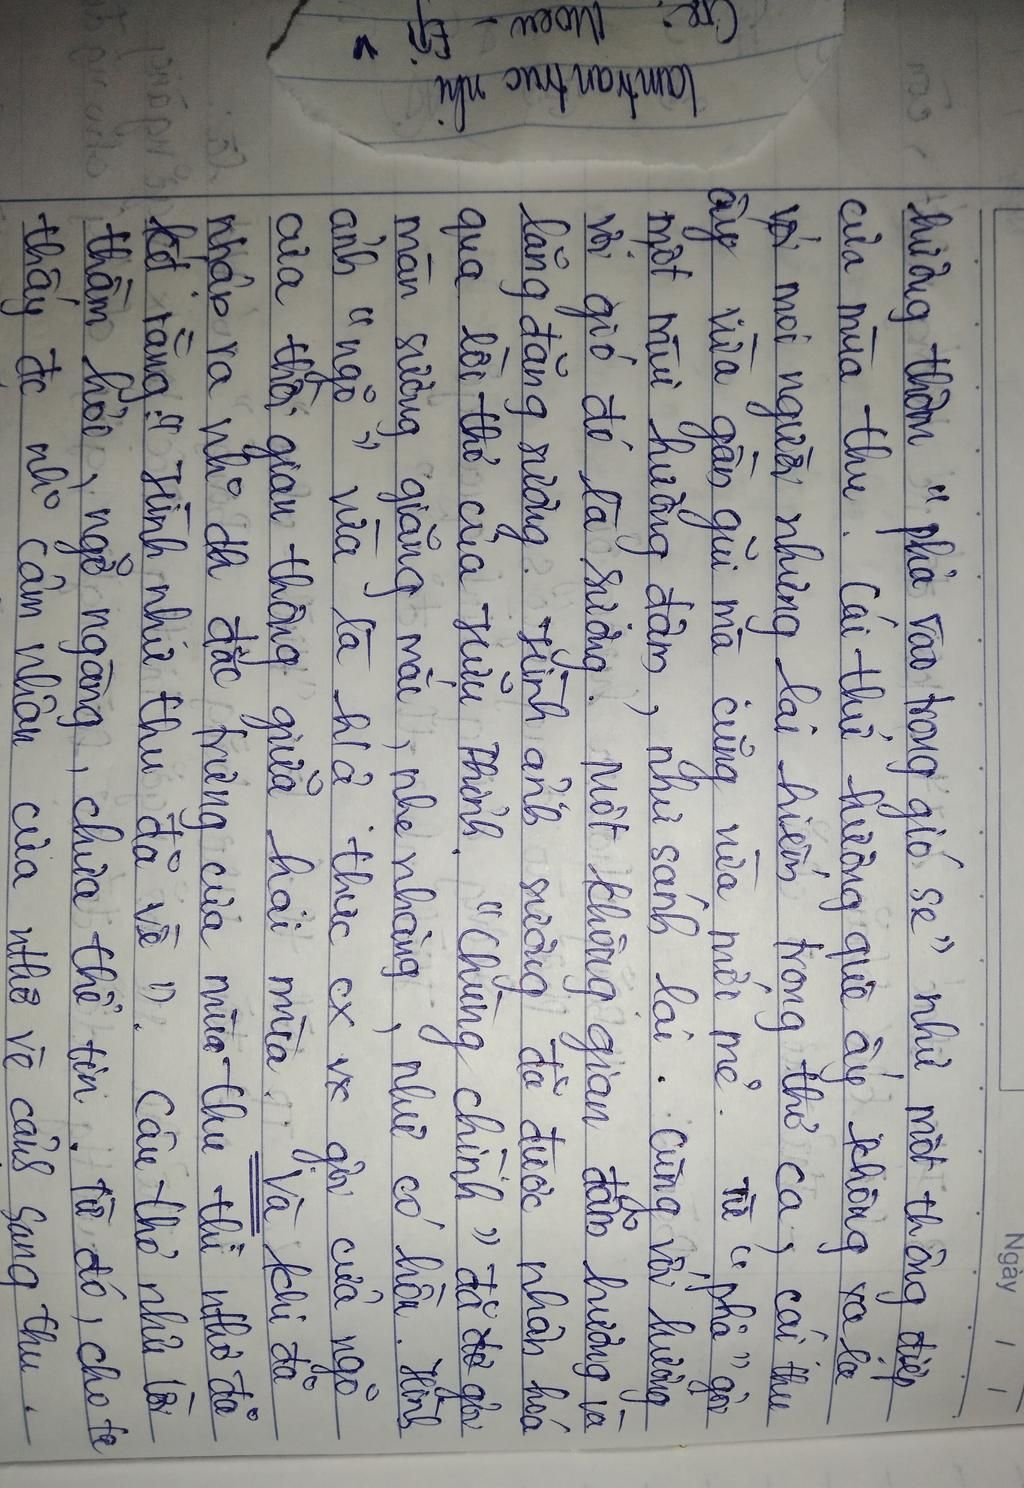 Cre: Moew - Fj
lamtrantruc nhi
Ngày / /
hương thơm "phả vào trong gió se" như một thông điệp
của mùa thu. Cái thứ hương quê ấy không xa lạ
với mọi người nhưng lại hiếm trong thơ ca, cái thu
ấy vừa gần gũi mà cũng vừa mới mẻ. Từ "phả" gợi
một mùi hương đậm, như sánh lại. Cùng với hương
với gió đó là sương. Một không gian đẫm hương và
lãng đãng sương. Hình ảnh sương đã được nhân hoá
qua lời thơ của Hữu Thỉnh. "Chùng chình" đã gợi
màn sương giăng mắc, nhẹ nhàng, như có hồn. Hình
ảnh "ngõ" vừa là h/a thực cx vx gợi cửa ngõ
của thời gian thông giữa hai mùa. Và khi đã
nhận ra nh dh đặc trưng của mùa thu thì nhà
kết rằng: "Hình như thu đã về". Câu thơ như lời
thầm hỏi, ngỡ ngàng, chưa thể tin. Từ đó, cho ta
thấy đc nh cảm nhận của nthơ về cảnh sang thu.